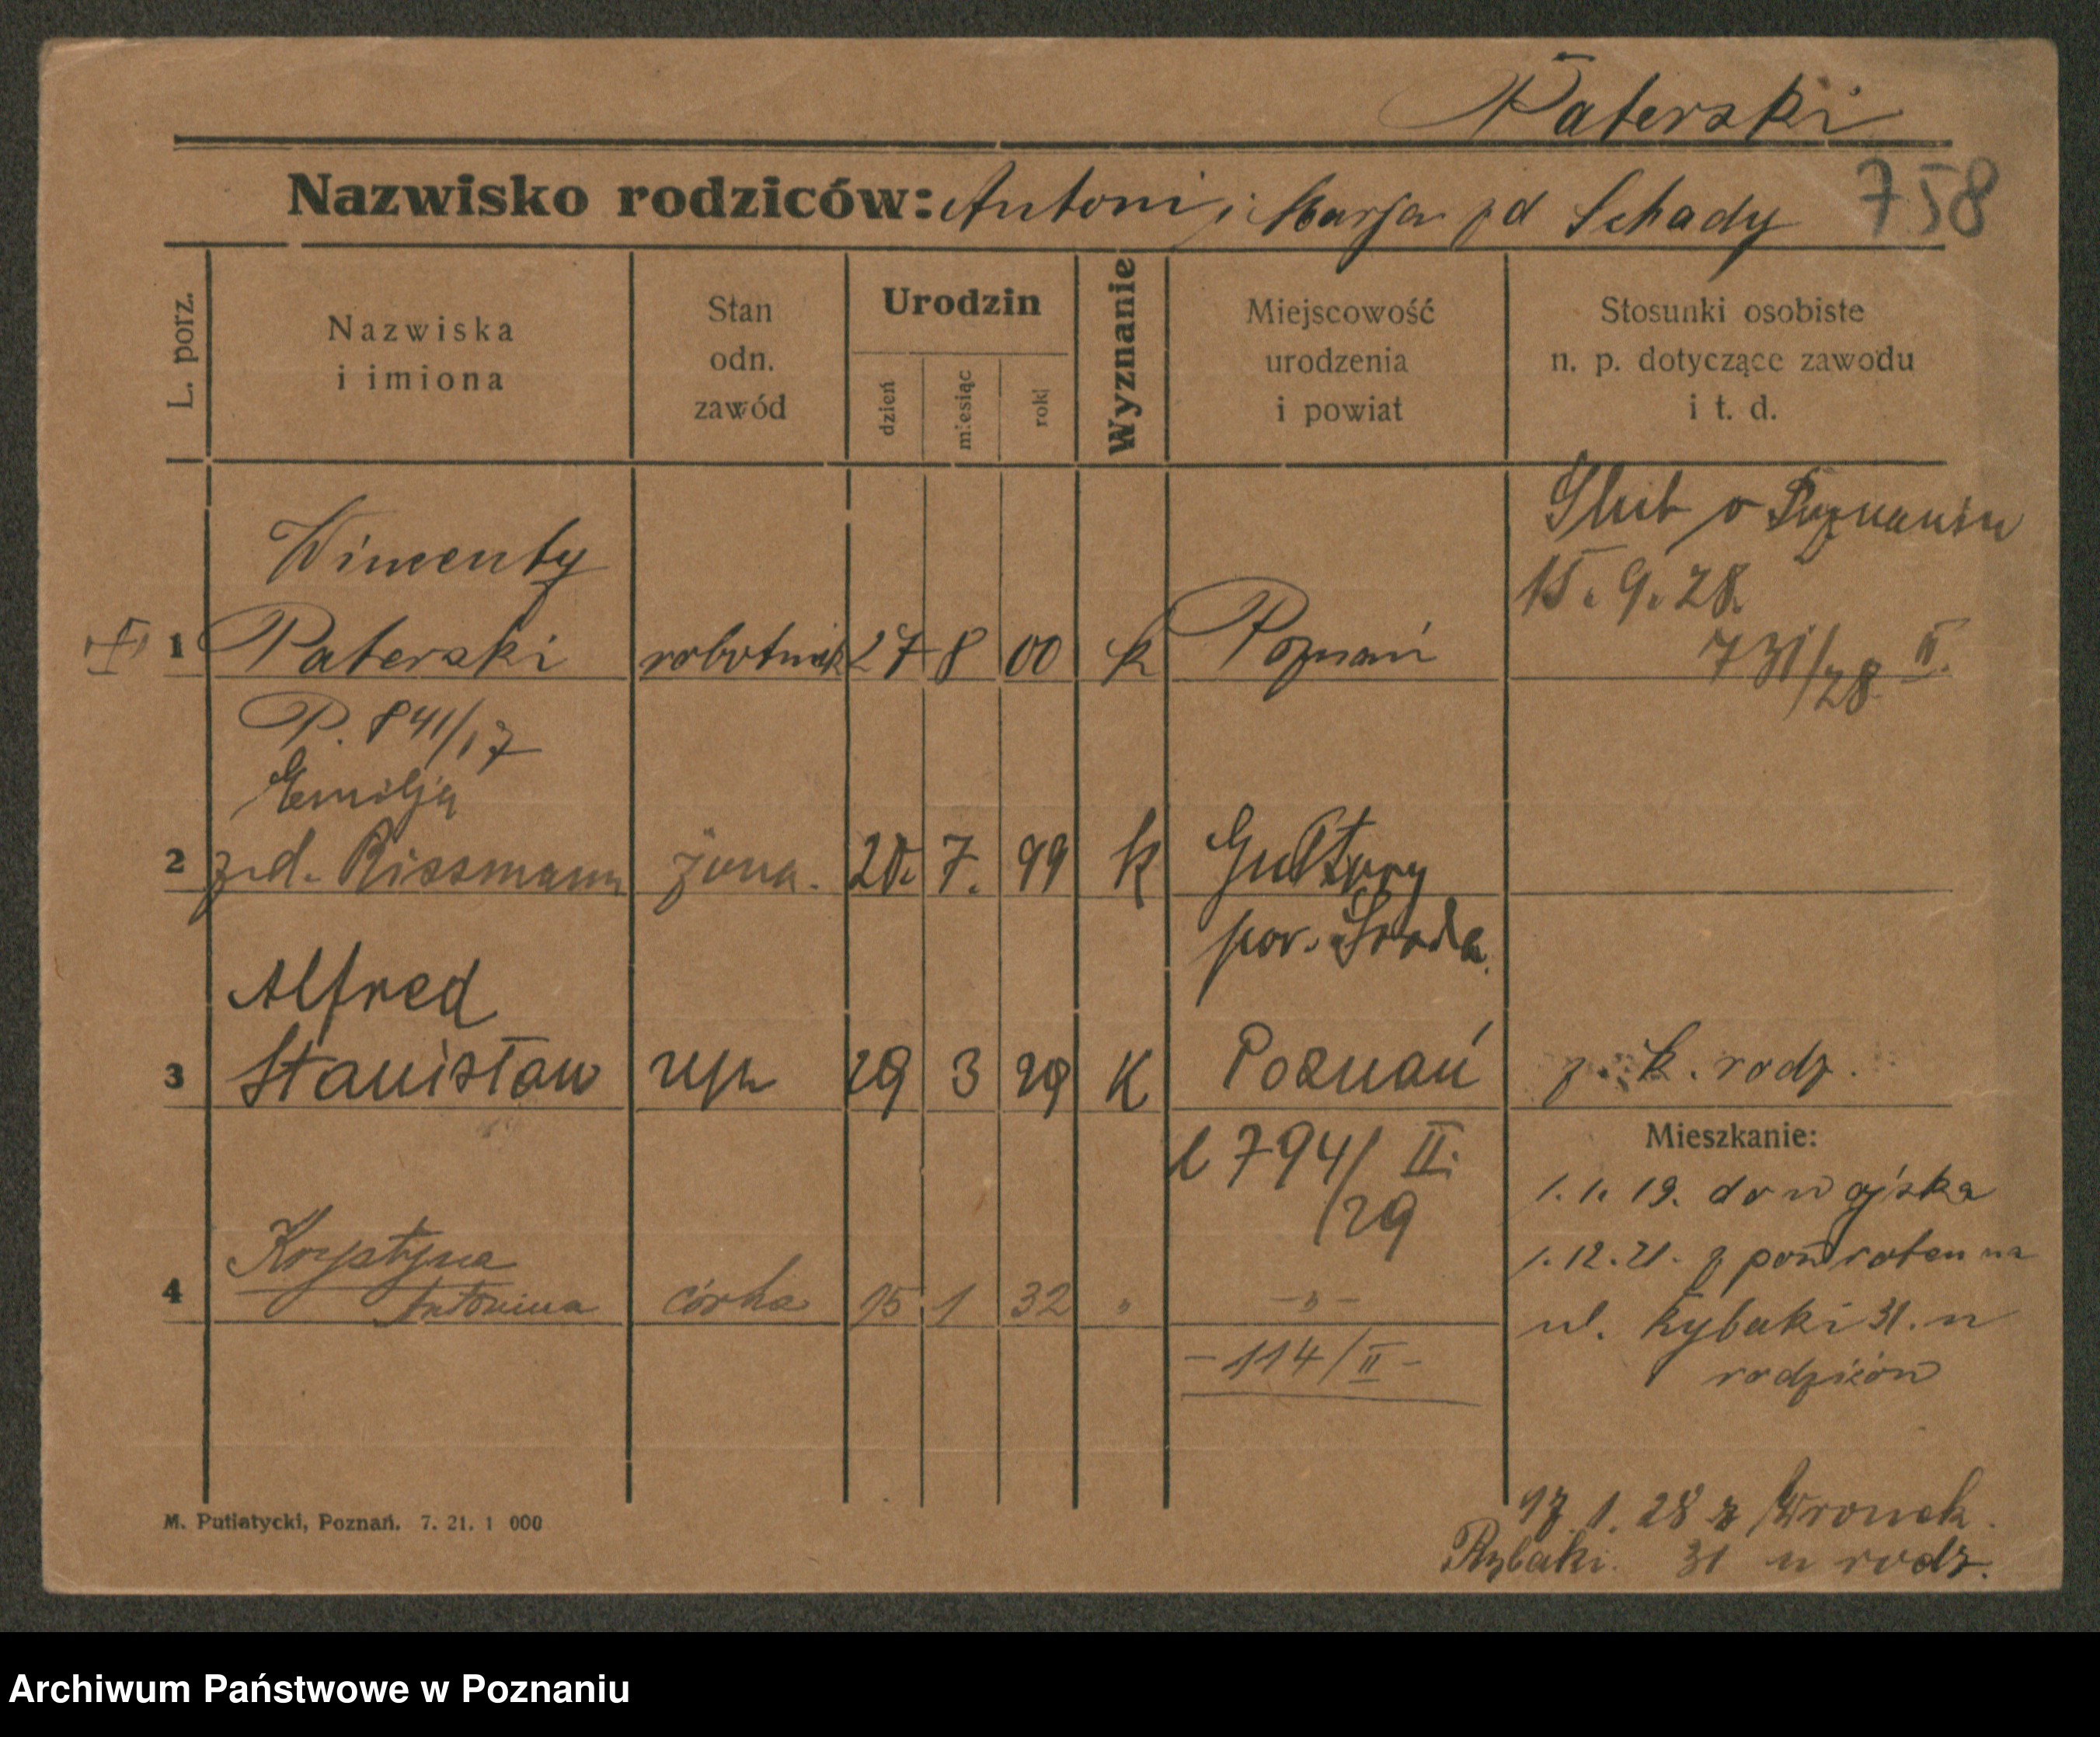 Paterski
Nazwisko rodziców: Antoni i Marja zd Schady 758
L. porz.
Nazwiska
i imiona
Stan
odn.
zawód
Urodzin
dzień
miesiąc
rok
Wyznanie
Miejscowość
urodzenia
i powiat
Stosunki osobiste
n. p. dotyczące zawodu
i t. d.
Ślub w Poznaniu
15. 9. 28.
731/28 II.
Wincenty
1 Paterski robotnik 27 8 00 k Poznań
P. 841/17
Emilja
2 zd. Rissmann żona. 20. 7. 99 k Gułtowy
pow. Środa.
Alfred
3 Stanisław syn 29 3 29 K Poznań z. k. rodz.
L 794/ II.
/29
Krystyna
4 Antonina córka 15 1 32 " -"-
-114/II-
Mieszkanie:
1. 1. 19. do wojska
1. 12. 21. z powrotem na
ul. Rybaki 31. u
rodziców
17. 1. 28 z Wronek.
Rybaki. 31 u rodz.
M. Putiatycki, Poznań. 7. 21. 1 000
Archiwum Państwowe w Poznaniu